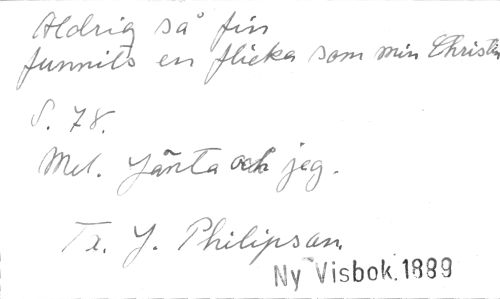 Aldrig så fin
funnits en flicka som min Christin
S. 78.
Mel. Jänta och jeg.
Tx. J. Philipsan.
Ny Visbok. 1889